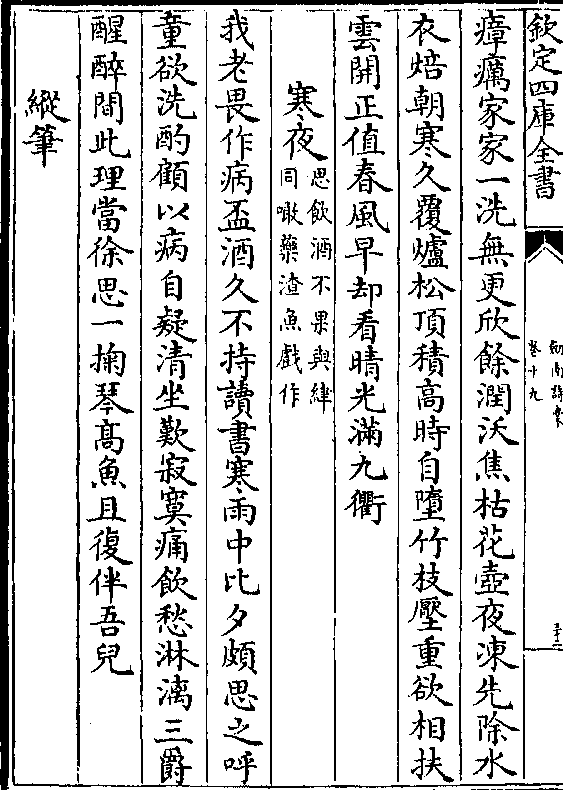 欽定四庫全書
劍南詩稾
卷十九
瘴癘家家一洗無更欣餘潤沃焦枯花壺夜凍先除水
衣焙朝寒久覆爐松頂積高時自墮竹枝壓重欲相扶
雲開正值春風早却看晴光滿九衢
寒夜
思飲酒不果與緯
同噉藥渣魚戲作
我老畏作病盃酒久不持讀書寒雨中比夕頗思之呼
童欲洗酌顧以病自疑清坐歎寂寞痛飲愁淋漓三爵
醒醉間此理當徐思一掬琴高魚且復伴吾兒
縱筆